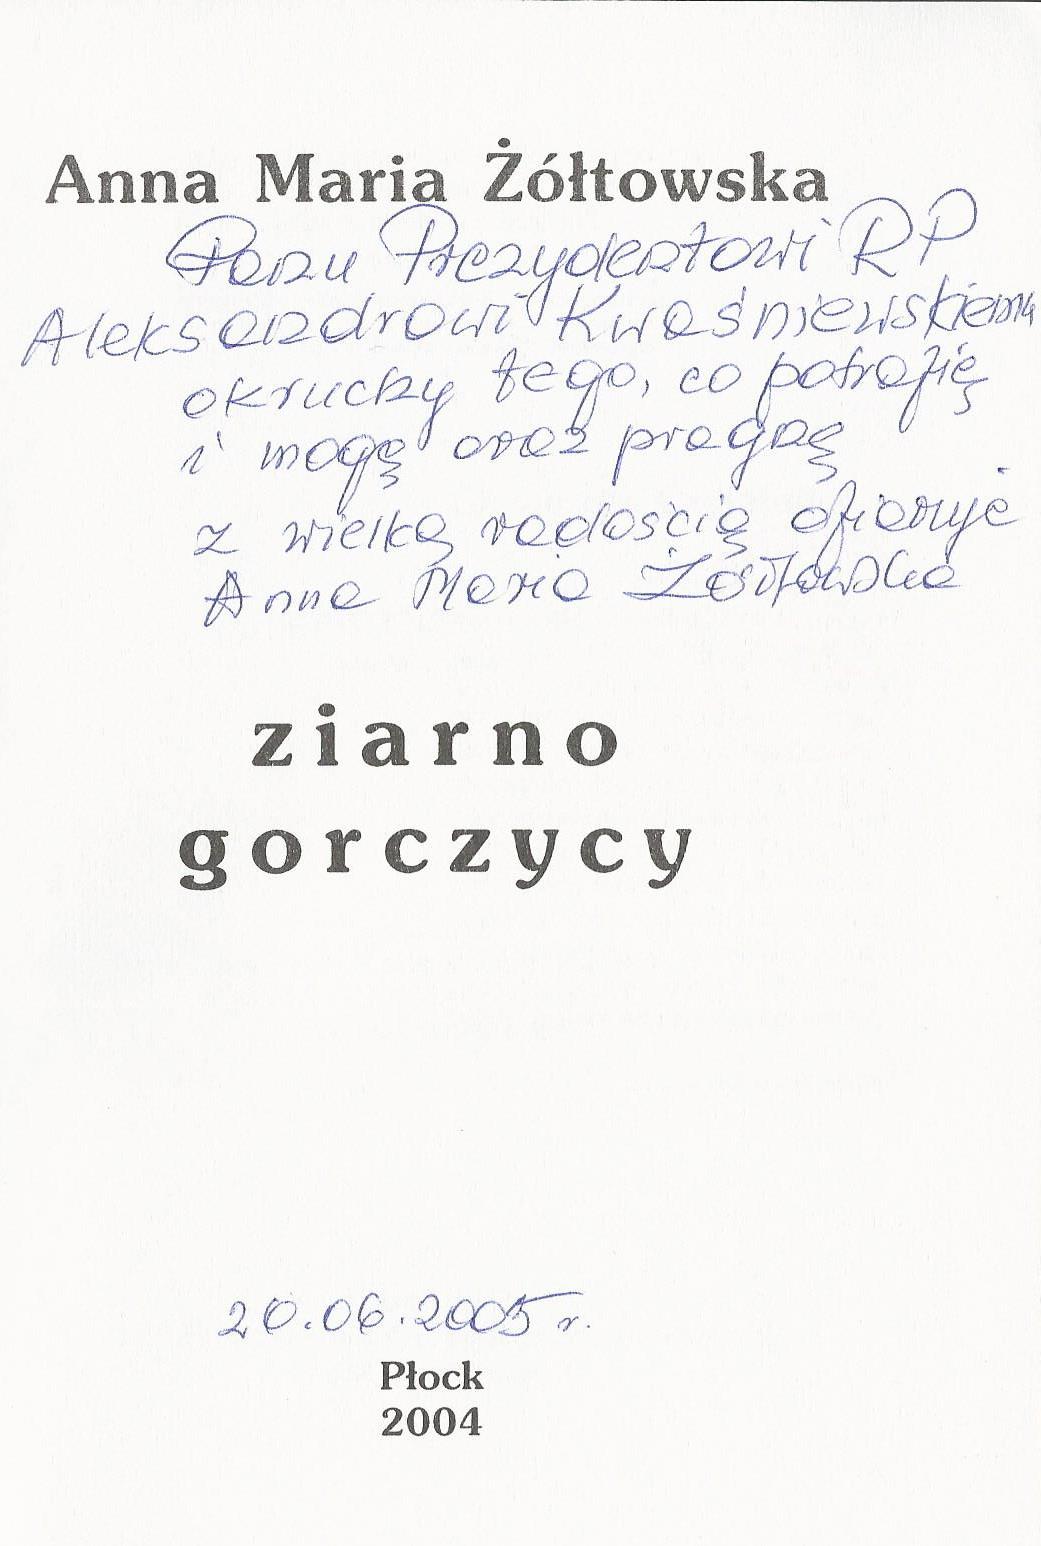 Anna Maria Żółtowska
Panu Prezydentowi RP
Aleksandrowi Kwaśniewskiemu
okruchy tego, co potrafię
i mogę oraz pragnę
z wielką radością ofiaruje
Anna Maria Żółtowska
ziarno
gorczycy
20.06.2005 r.
Płock
2004